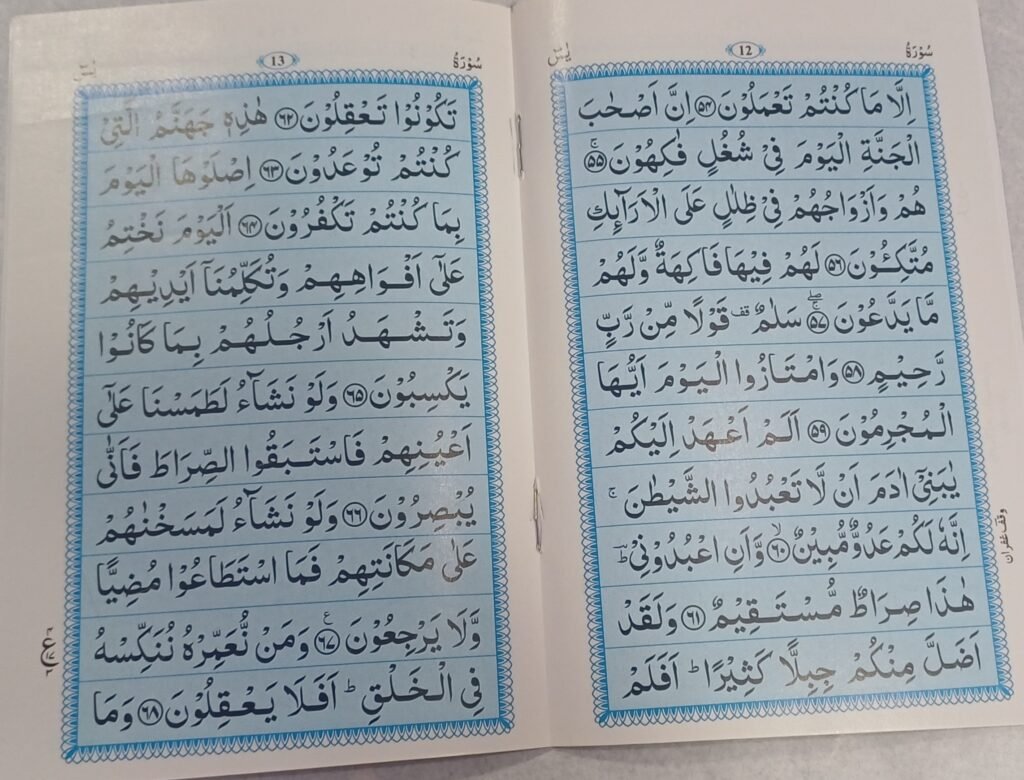 سُوْرَةُ
12
يٰسٓ
اِلَّا مَا كُنْتُمْ تَعْمَلُوْنَ ۵۴ اِنَّ اَصْحٰبَ
الْجَنَّةِ الْيَوْمَ فِيْ شُغُلٍ فٰكِهُوْنَ ۚ ۵۵
هُمْ وَاَزْوَاجُهُمْ فِيْ ظِلٰلٍ عَلَى الْاَرَآئِكِ
مُتَّكِـُٔوْنَ ۵۶ لَهُمْ فِيْهَا فَاكِهَةٌ وَّلَهُمْ
مَّا يَدَّعُوْنَ ۵۷ سَلٰمٌ قف قَوْلًا مِّنْ رَّبٍّ
رَّحِيْمٍ ۵۸ وَامْتَازُوا الْيَوْمَ اَيُّهَا
الْمُجْرِمُوْنَ ۵۹ اَلَمْ اَعْهَدْ اِلَيْكُمْ
يٰبَنِيْٓ اٰدَمَ اَنْ لَّا تَعْبُدُوا الشَّيْطٰنَ ۚ
اِنَّهٗ لَكُمْ عَدُوٌّ مُّبِيْنٌ ۙ ۶۰ وَّاَنِ اعْبُدُوْنِيْ ؕ
هٰذَا صِرَاطٌ مُّسْتَقِيْمٌ ۶۱ وَلَقَدْ
اَضَلَّ مِنْكُمْ جِبِلًّا كَثِيْرًا ؕ اَفَلَمْ
وقف غفران
سُوْرَةُ
13
يٰسٓ
تَكُوْنُوْا تَعْقِلُوْنَ ۶۲ هٰذِهٖ جَهَنَّمُ الَّتِيْ
كُنْتُمْ تُوْعَدُوْنَ ۶۳ اِصْلَوْهَا الْيَوْمَ
بِمَا كُنْتُمْ تَكْفُرُوْنَ ۶۴ اَلْيَوْمَ نَخْتِمُ
عَلٰٓى اَفْوَاهِهِمْ وَتُكَلِّمُنَآ اَيْدِيْهِمْ
وَتَشْهَدُ اَرْجُلُهُمْ بِمَا كَانُوْا
يَكْسِبُوْنَ ۶۵ وَلَوْ نَشَآءُ لَطَمَسْنَا عَلٰٓى
اَعْيُنِهِمْ فَاسْتَبَقُوا الصِّرَاطَ فَاَنّٰى
يُبْصِرُوْنَ ۶۶ وَلَوْ نَشَآءُ لَمَسَخْنٰهُمْ
عَلٰى مَكَانَتِهِمْ فَمَا اسْتَطَاعُوْا مُضِيًّا
وَّلَا يَرْجِعُوْنَ ع ۶۷ وَمَنْ نُّعَمِّرْهُ نُنَكِّسْهُ
فِي الْخَلْقِ ؕ اَفَلَا يَعْقِلُوْنَ ۶۸ وَمَا